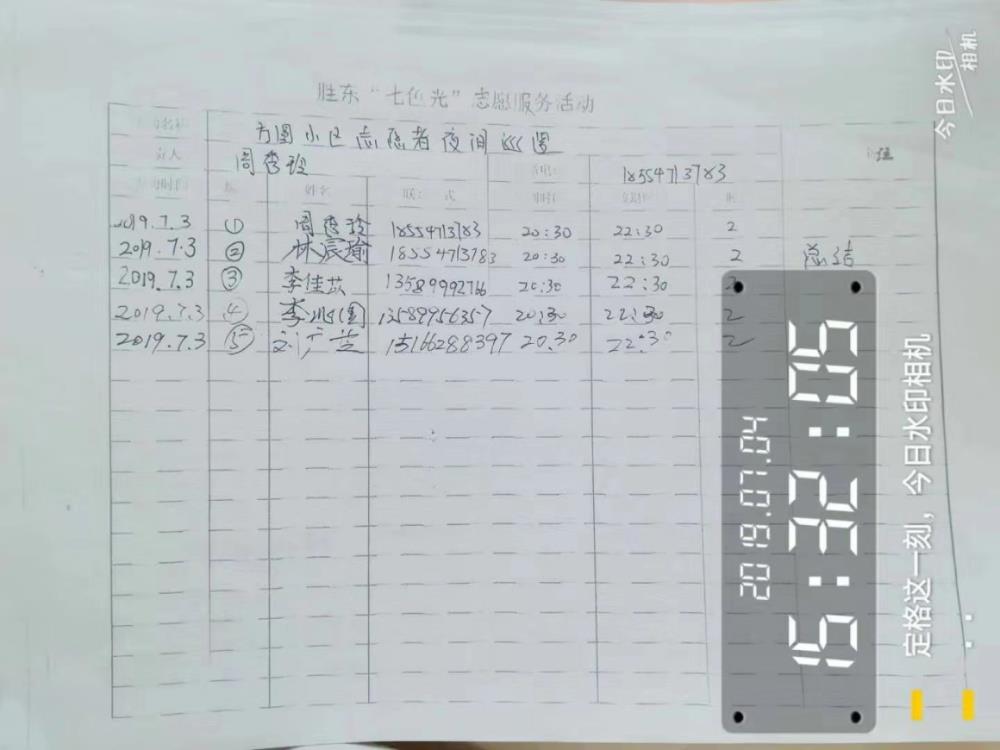 胜东“七色光”志愿服务活动
方圆小区志愿者夜间巡逻
周秀玲 18554713783
姓名
2019.7.3 ① 周秀玲 18554713783 20:30 22:30 2
2019.7.3 ② 林辰瑜 18554713783 20:30 22:30 2 总结
2019.7.3 ③ 李佳苡 13589992766 20:30 22:30 2
2019.7.3 ④ 李 国 13589956357 20:30 22:30 2
2019.7.3 ⑤ 刘广芝 15166288397 20.30 22:30 2
2019.07.04
15:32:05
定格这一刻，今日水印相机
今日水印
相机